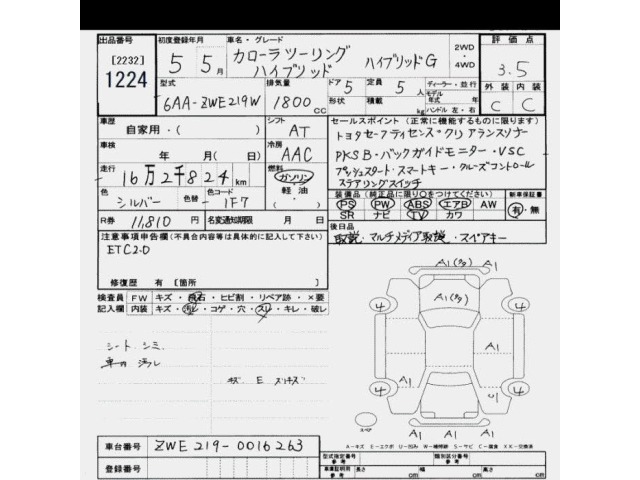 出品番号 初度登録年月 車名・グレード 評価点
[2232] 5 5月 カローラツーリング ハイブリッドG 2WD 3.5
1224 ハイブリッド 4WD
型式 排気量 ドア 5 定員 5人 ディーラー・並行 外装 内装
6AA-ZWE219W 1800cc 形状 積載 kg モデル 年式 年 ハンドル 左・右 C C
車歴 シフト セールスポイント(正常に機能するものに限ります)
自家用・( ) AT トヨタセーフティセンスクリアランスソナー
車検 冷房 PKSB・バックガイドモニター・VSC
年 月(日) AAC プッシュスタート・スマートキー・クルーズコントロール
走行 燃料 ステアリングスイッチ
16万2千824km ガソリン 装備品(純正品に限り○をつけてください) 新車保証書
色 色替 色コード 軽・油 PS PW ABS エアB AW 有・無
シルバー 1F7 SR ナビ TV カワ
R券 11,810円 名変通知期限 月 日 後日品
取説・マルチメディア取説・スペアキー
注意事項申告欄(不具合内容等は具体的に記入して下さい)
ETC2.0
修復歴 有 [箇所 ]
検査員 FW キズ・飛石・ヒビ割・リペア跡・×要
記入欄 内装 キズ・汚レ・コゲ・穴・スレ・キレ・破レ
シート シミ
車内 汚レ
A1
A1
4 4
A1
A1
4 4
A1 A1
スペア
A-キズ E-エクボ U-凹み W-補修跡 S-サビ C-腐食 XX-交換済
車台番号 ZWE219-0016263
登録番号
型式指定番号 参考 類別区分番号 参考
車庫証明用 参考 長さ cm 幅 cm 高さ cm